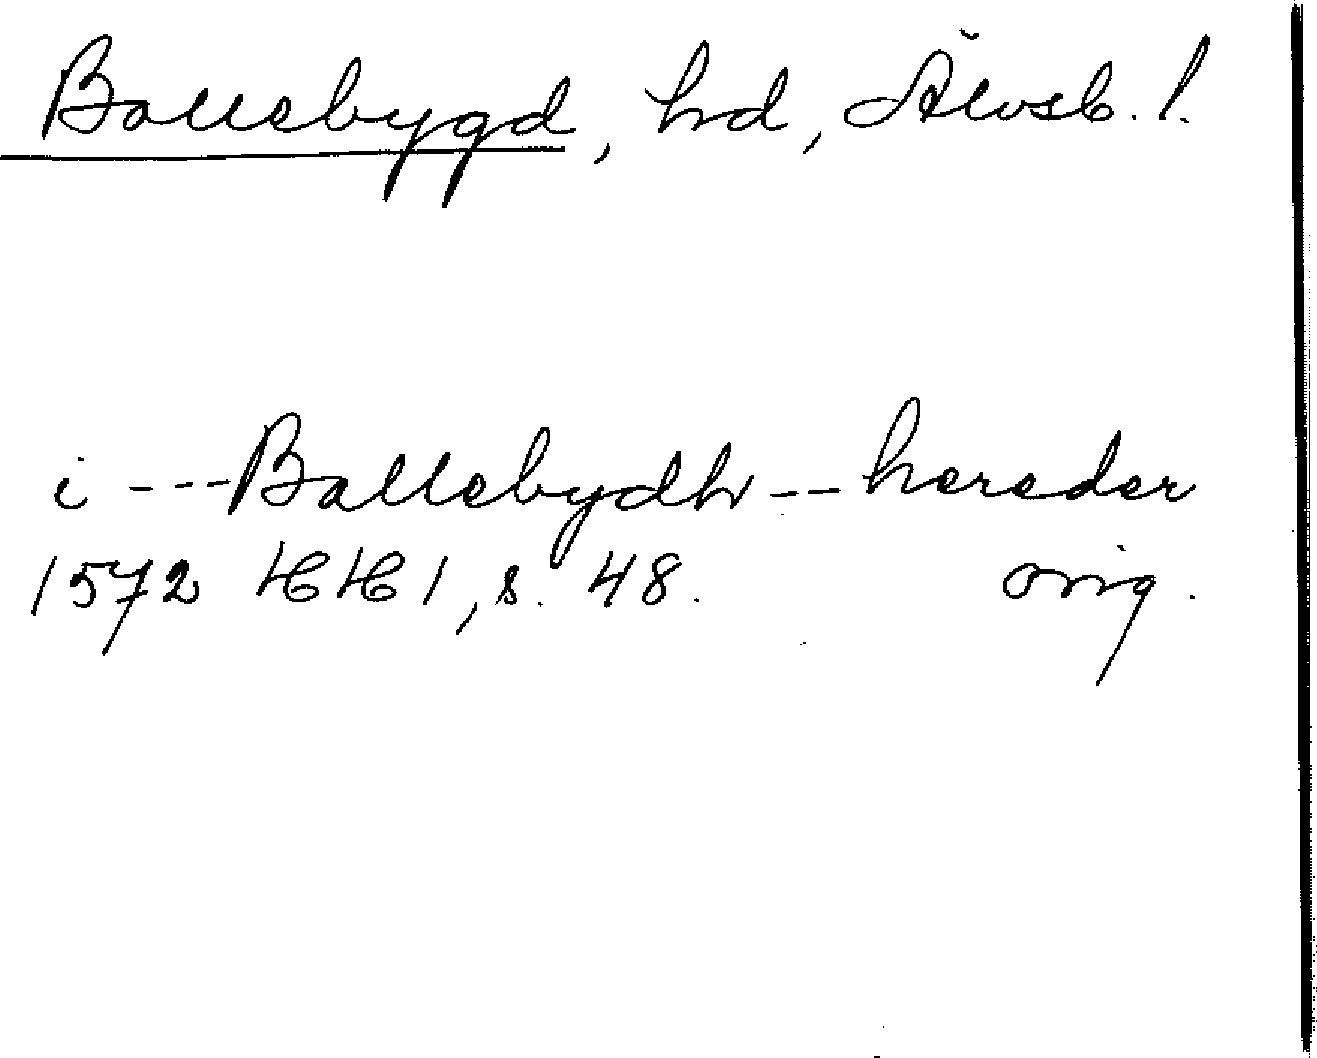 Bollebygd, hd, Älvsb. l.
i --- Bollebydh -- hereder
1572 HH 1, s. 48. orig.